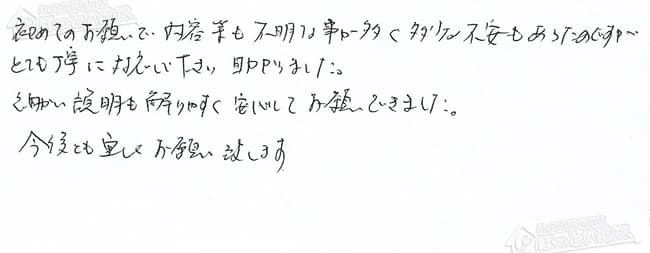 初めてのお願いで 内容等も不明な事が多く 多少 不安もあったのですが
とても丁寧に対応して下さり 助かりました。
細かい説明も解りやすく安心してお願いできました。
今後とも宜しくお願い致します